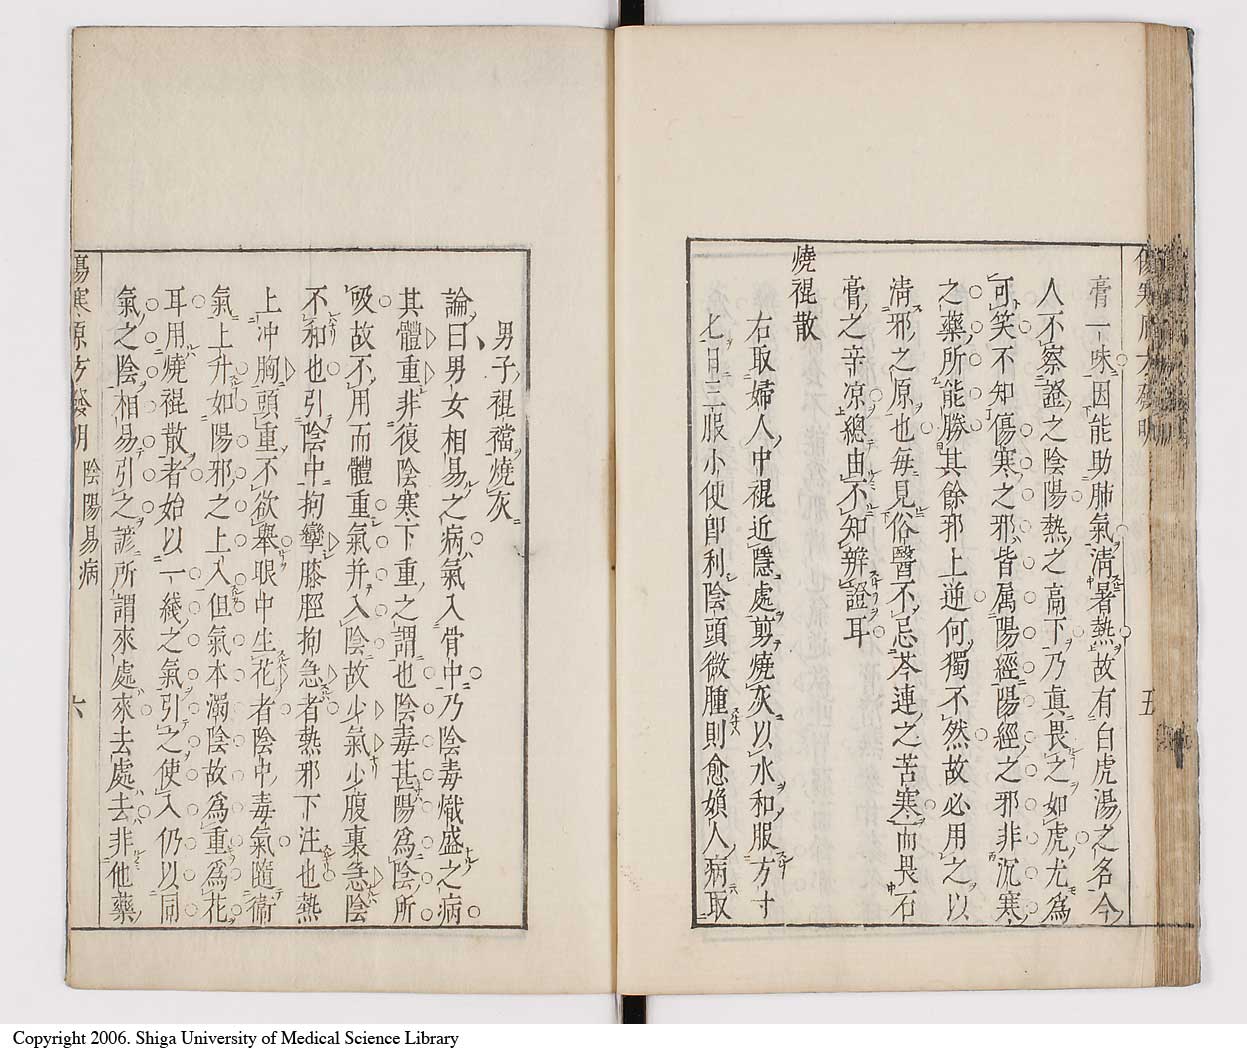 膏一味因能助肺氣清暑熱故有白虎湯之名今
人不察證之陰陽熱之高下乃眞畏之如虎尤爲
可笑不知傷寒之邪皆属陽經陽經之邪非沉寒
之藥所能勝其餘邪上逆何獨不然故必用之以
淸邪之原也每見俗醫不忌芩連之苦寒而畏石
膏之辛凉總由不知辨證耳
燒裩散
右取婦人中裩近隱處剪燒灰以水和服方寸
匕日三服小使卽利陰頭微腫則愈婦人病取
男子裩襠燒灰
論曰男女相易之病氣入骨中乃陰毒熾盛之病
其體重非復陰寒下重之謂也陰毒甚陽爲陰所
吸故不用而體重氣并入陰故少氣少腹裏急陰
不和也引陰中拘攣膝脛拘急者熱邪下注也熱
上冲胸頭重不欲舉眼中生花者陰中毒氣隨衞
氣上升如陽邪之上入但氣本濁陰故爲重爲花
耳用燒裩散者始以一綫之氣引之使入仍以同
氣之陰相易引之諺所謂來處來去處去非他藥
傷寒原方發明 陰陽易病 六
Copyright 2006. Shiga University of Medical Science Library